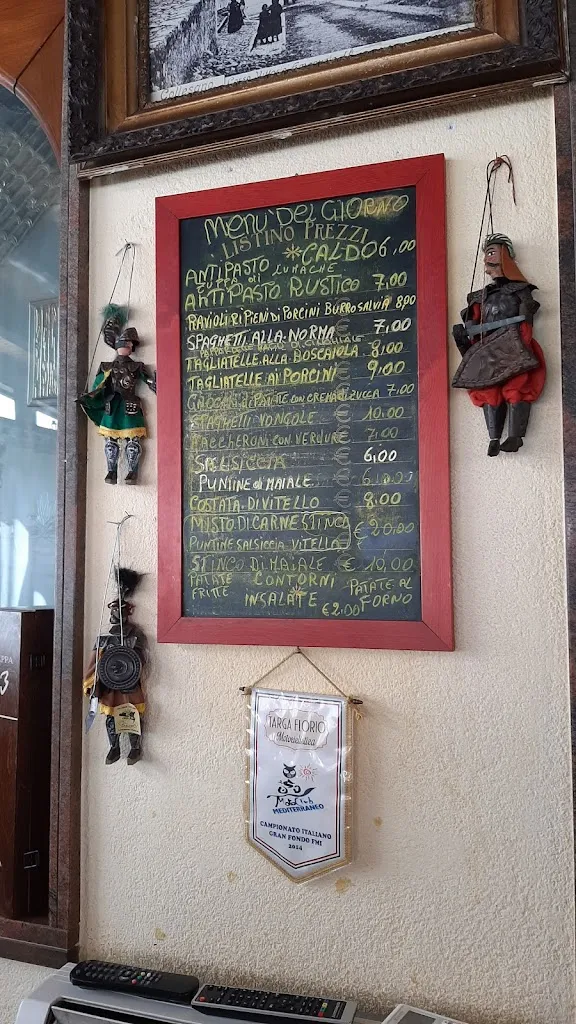 Collesano
MENU DEL GIORNO
LISTINO PREZZI
ANTIPASTO *CALDO 6,00
ZUPPA DI LUMACHE
ANTIPASTO RUSTICO 7,00
RAVIOLI RIPIENI DI PORCINI BURRO SALVIA 8,00
SPAGHETTI ALLA NORMA € 7,00
TAGLIATELLE ALLA BOSCAIOLA € 8,00
TAGLIATELLE AI PORCINI € 9,00
GNOCCHI DI PATATE CON CREMA DI ZUCCA 7,00
SPAGHETTI VONGOLE € 10,00
MACCHERONI CON VERDURE € 7,00
SALSICCIA € 6,00
PUNTINE di MAIALE € 6,00
COSTATA DI VITELLO € 8,00
MISTO DI CARNE STINCO
PUNTINE SALSICCIA VITELLA € 20,00
STINCO DI MAIALE € 10,00
PATATE FRITTE CONTORNI PATATE AL FORNO
INSALATE €2,00
TARGA FLORIO
Motociclistica
MotoClub
MEDITERRANEO
CAMPIONATO ITALIANO
GRAN FONDO FMI
2014